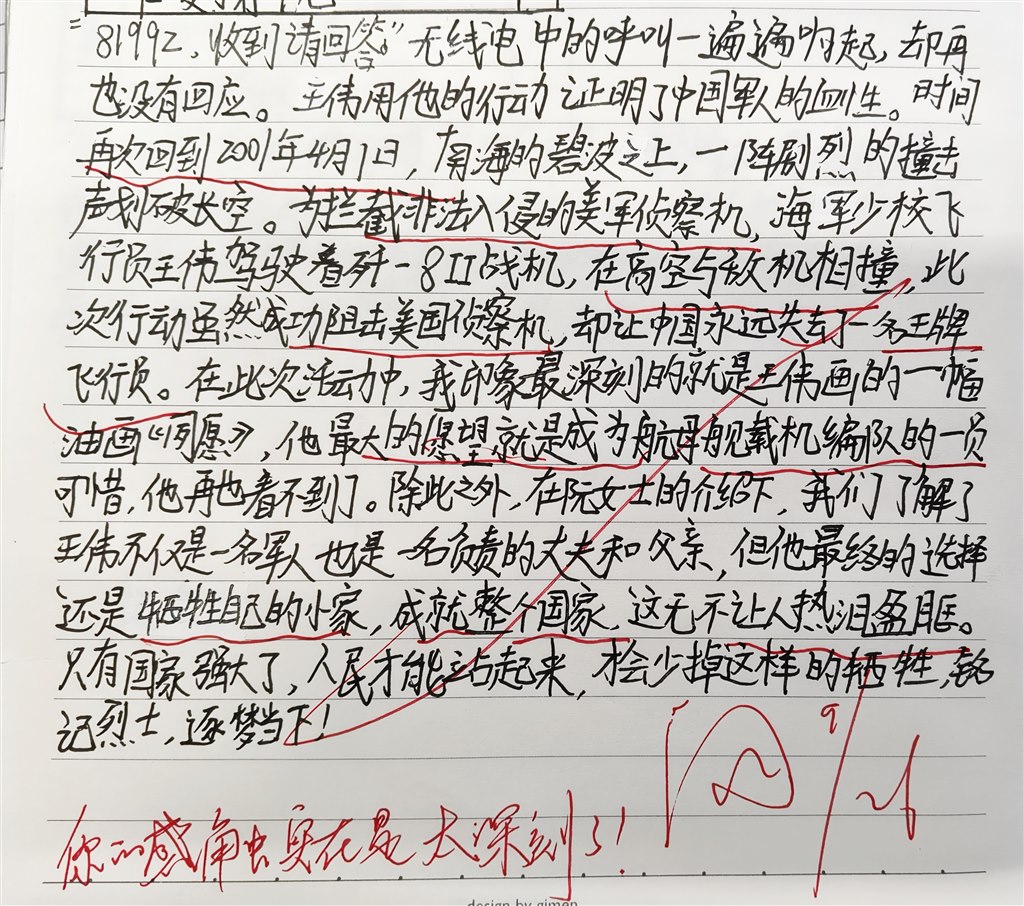 "81992,收到请回答。"无线电中的呼叫一遍遍响起,却再
也没有回应。王伟用他的行动证明了中国军人的血性。时间
再次回到2001年4月1日,南海的碧波之上,一阵剧烈的撞击
声划破长空。为拦截非法入侵的美军侦察机,海军少校飞
行员王伟驾驶着歼-8II战机,在高空与敌机相撞,此
次行动虽然成功阻击美国侦察机,却让中国永远失去了一名王牌
飞行员。在此次活动中,我印象最深刻的就是王伟画的一幅
油画《问愿》,他最大的愿望就是成为航母舰载机编队的一员
可惜,他再也看不到了。除此之外,在阮女士的介绍下,我们了解了
王伟不仅是一名军人也是一名负责的丈夫和父亲,但他最终的选择
还是牺牲自己的小家,成就整个国家,这无不让人热泪盈眶。
只有国家强大了,人民才能站起来,才会少掉这样的牺牲,铭
记烈士,逐梦当下!
阅 9/26
你的感触实在是太深刻了!
design by gimen